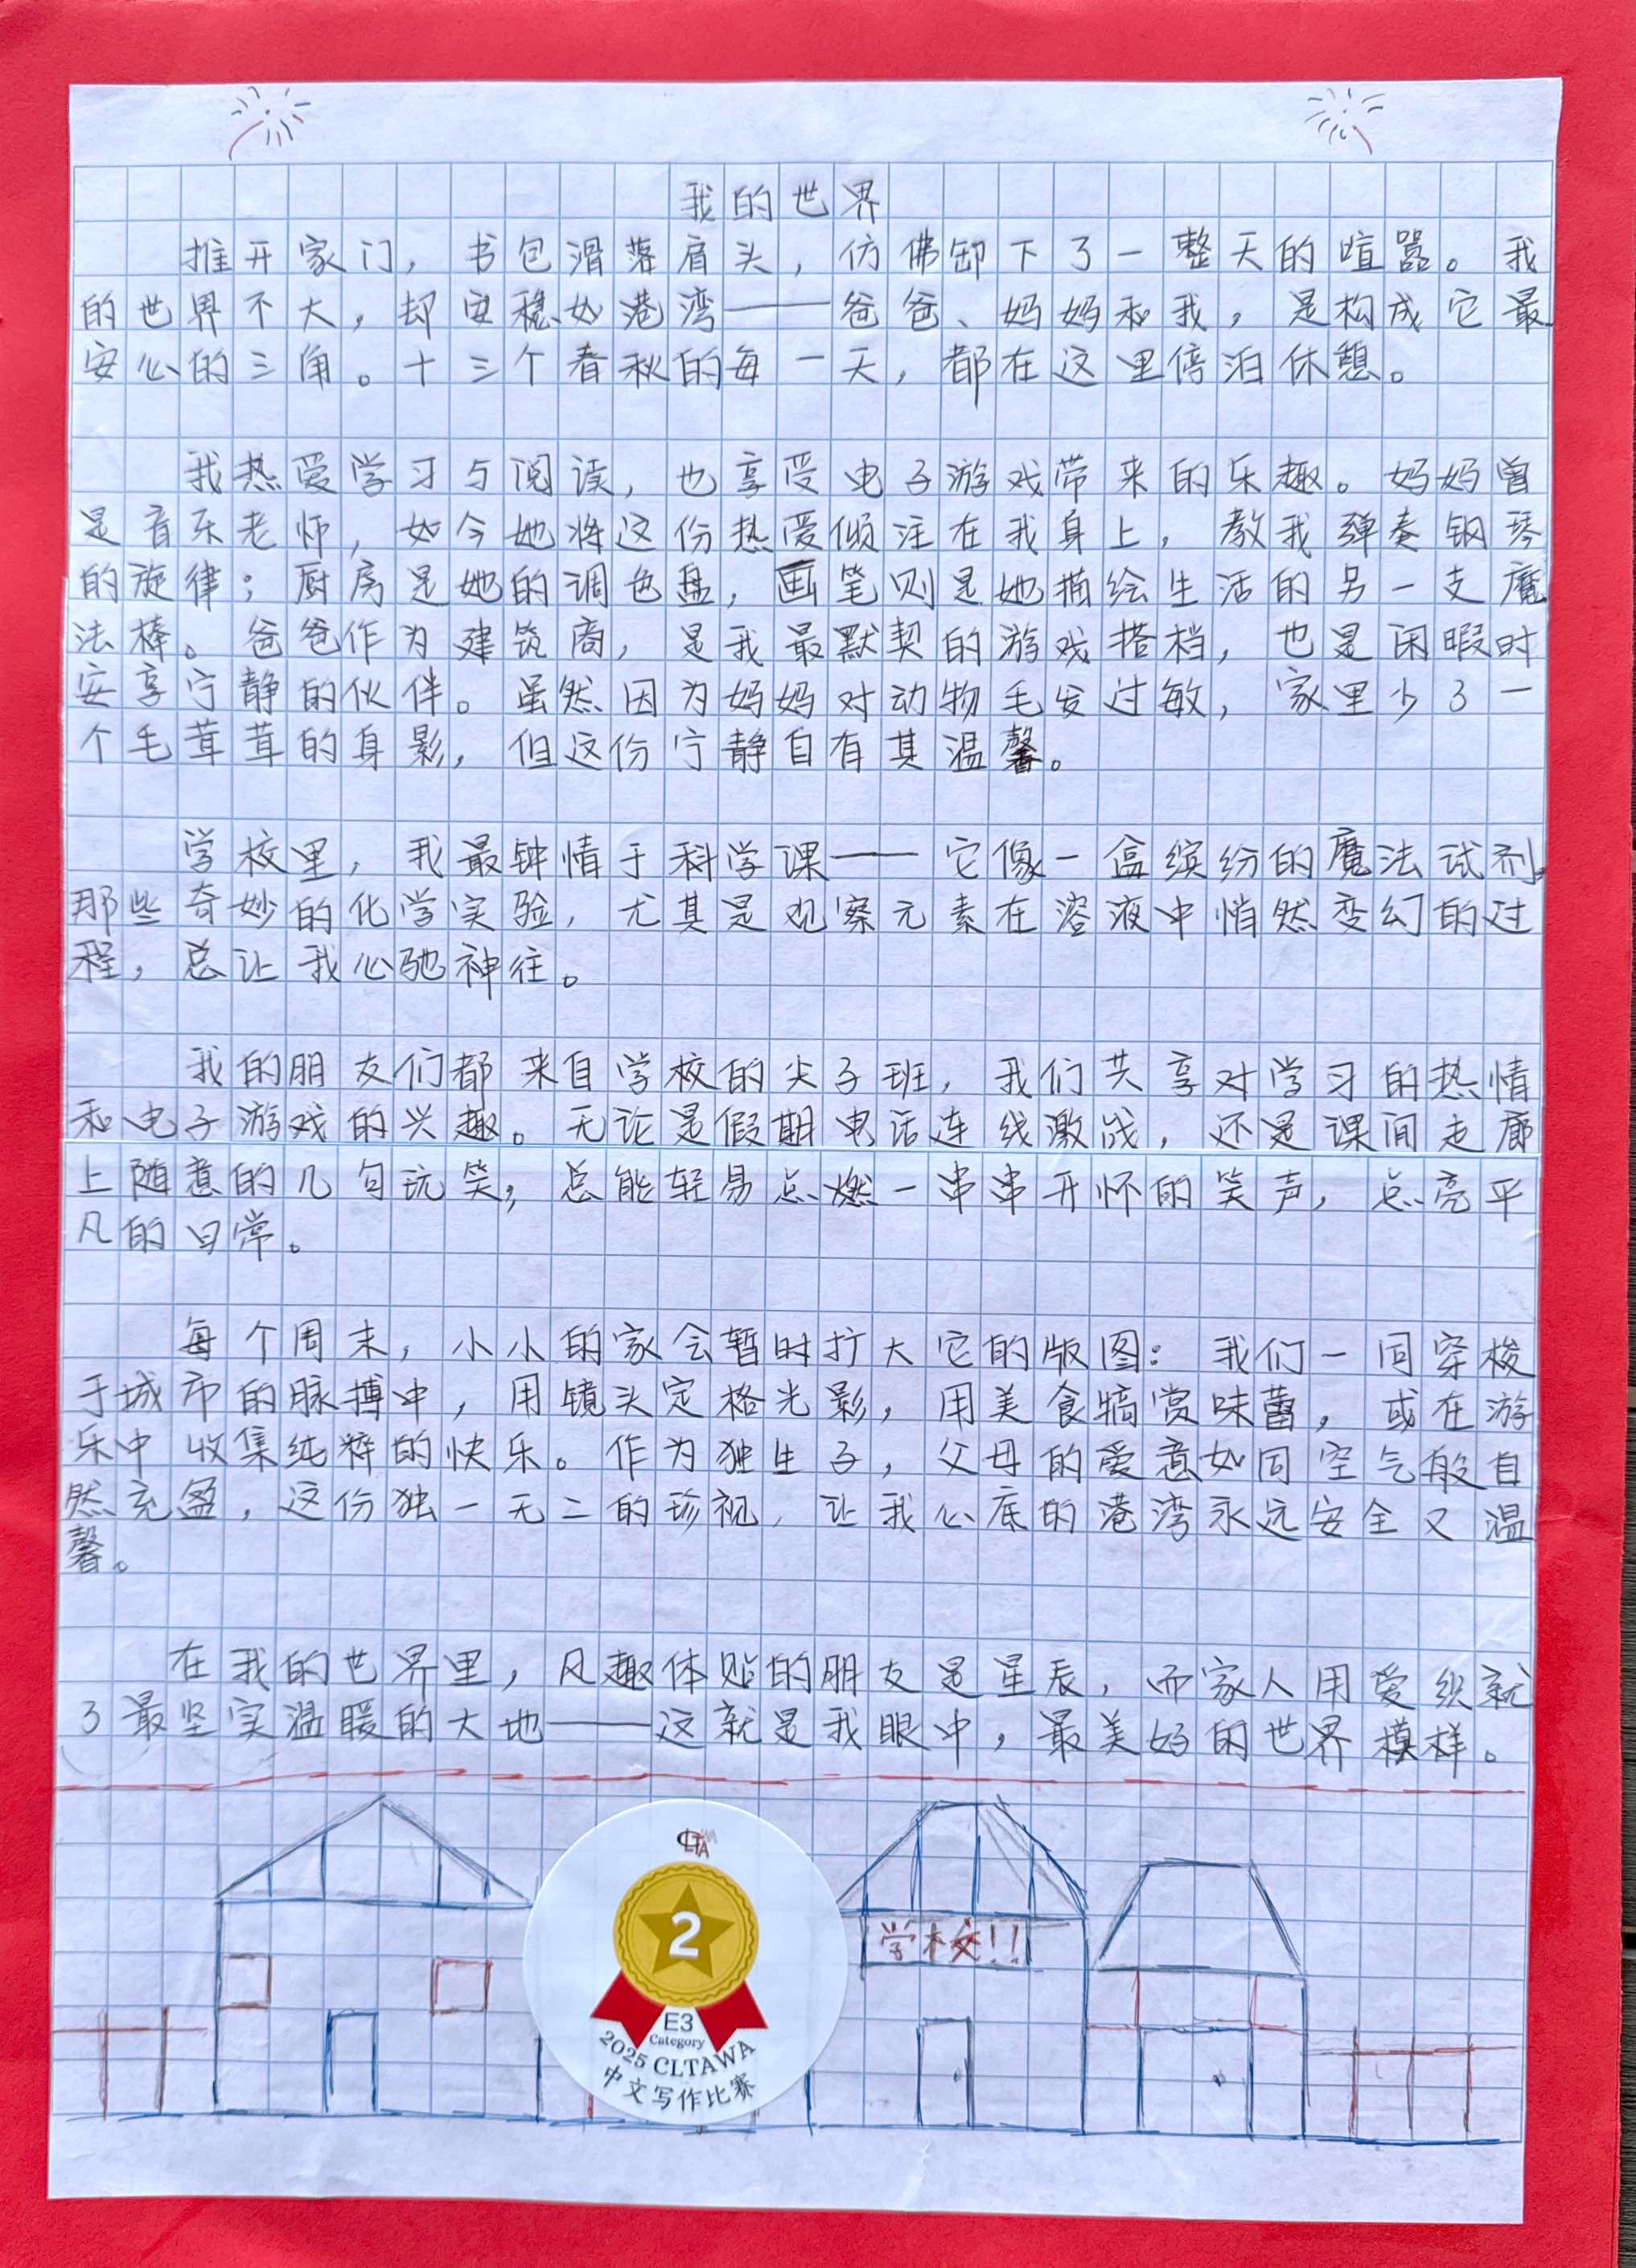 我的世界
推开家门，书包滑落肩头，仿佛卸下了一整天的喧嚣。我
的世界不大，却安稳如港湾——爸爸、妈妈和我，是构成它最
安心的三角。十三个春秋的每一天，都在这里停泊休憩。
我热爱学习与阅读，也享受电子游戏带来的乐趣。妈妈曾
是音乐老师，如今她将这份热爱倾注在我身上，教我弹奏钢琴
的旋律；厨房是她的调色盘，画笔则是她描绘生活的另一支魔
法棒。爸爸作为建筑商，是我最默契的游戏搭档，也是闲暇时
安享宁静的伙伴。虽然因为妈妈对动物毛发过敏，家里少了一
个毛茸茸的身影，但这份宁静自有其温馨。
学校里，我最钟情于科学课——它像一盒缤纷的魔法试剂。
那些奇妙的化学实验，尤其是观察元素在溶液中悄然变幻的过
程，总让我心驰神往。
我的朋友们都来自学校的尖子班，我们共享对学习的热情
和电子游戏的兴趣。无论是假期电话连线激战，还是课间走廊
上随意的几句玩笑，总能轻易点燃一串串开怀的笑声，点亮平
凡的日常。
每个周末，小小的家会暂时扩大它的版图：我们一同穿梭
于城市的脉搏中，用镜头定格光影，用美食犒赏味蕾，或在游
乐中收集纯粹的快乐。作为独生子，父母的爱意如同空气般自
然充盈，这份独一无二的珍视，让我心底的港湾永远安全又温
馨。
在我的世界里，风趣体贴的朋友是星辰，而家人用爱织就
了最坚实温暖的大地——这就是我眼中，最美好的世界模样。
学校!!
CLTA
2
E3
Category
2025 CLTAWA
中文写作比赛